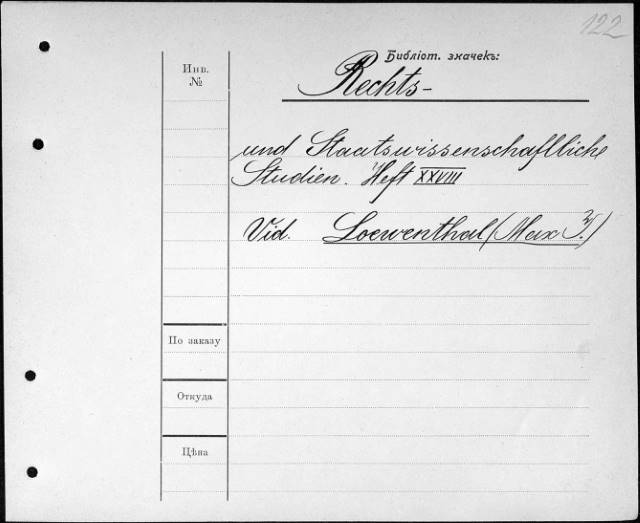 122
Библіот. значекъ:
Инв.
№
Rechts-
und Staatswissenschaftliche
Studien. Heft XXVIII
Vid. Loewenthal (Max J.)
По заказу
Откуда
Цѣна